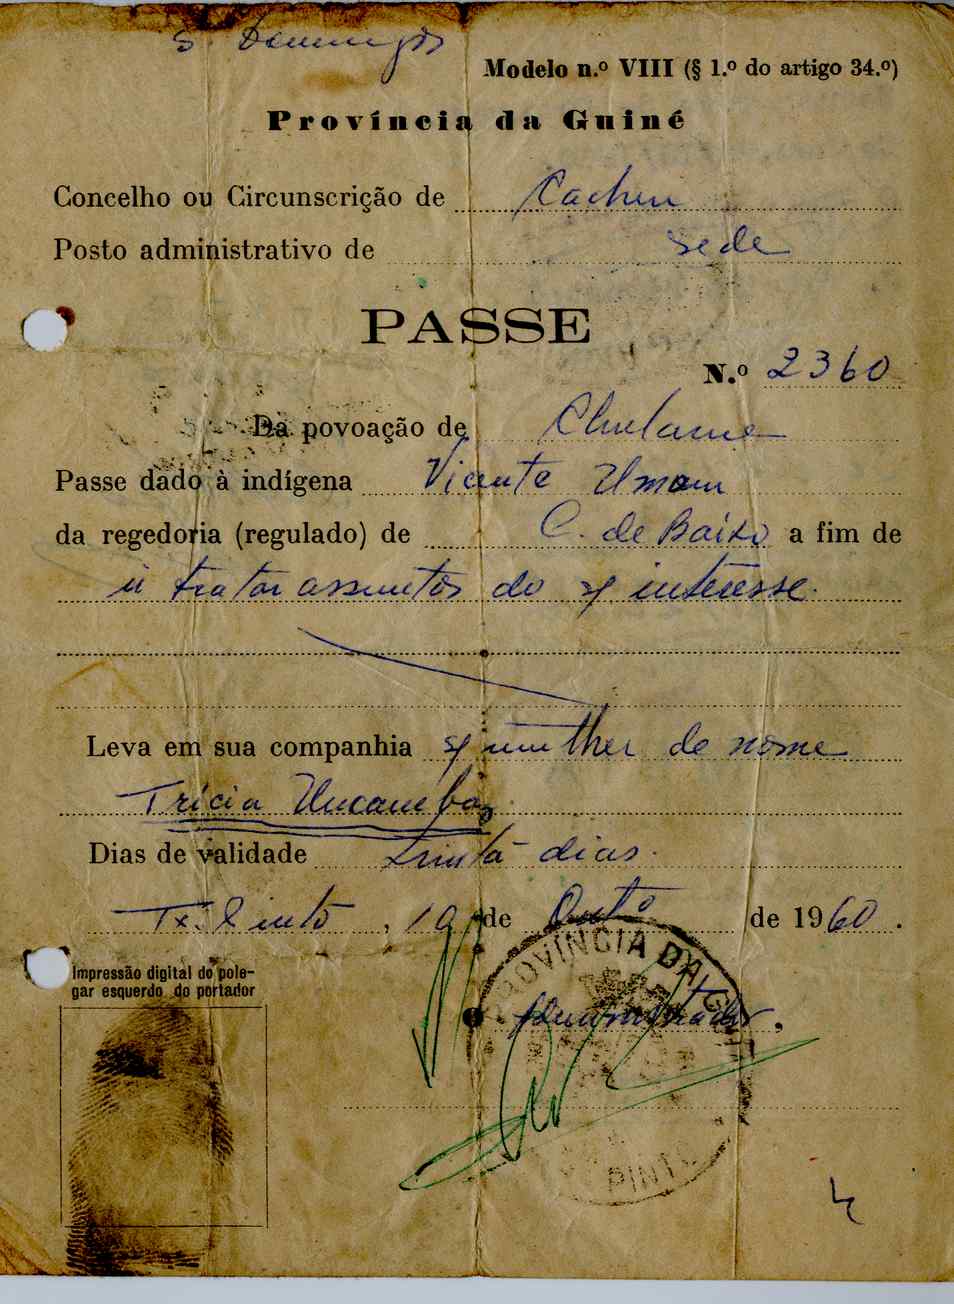 S. Domingos
Modelo n.º VIII (§ 1.º do artigo 34.º)
Província da Guiné
Concelho ou Circunscrição de Cacheu
Posto administrativo de Sede
PASSE
N.º 2360
Da povoação de
Passe dado à indígena Vicente
da regedoria (regulado) de C. de Baixo a fim de
ir tratar assuntos do s/ interesse.
Leva em sua companhia s/ mulher de nome
Trícia
Dias de validade trinta dias.
Tx. Pinto, 19 de Outº de 1960.
Impressão digital do pole-
gar esquerdo do portador
O Administrador,
PROVÍNCIA DA GUINÉ
PINTO